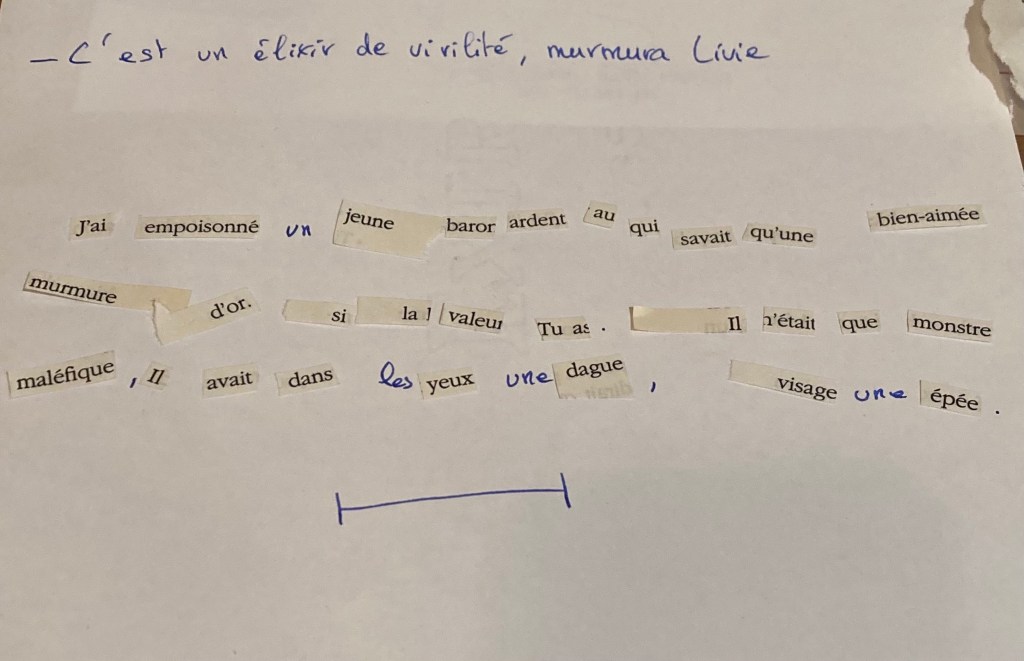 – C'est un élixir de virilité, murmura Livie
J'ai empoisonné un jeune baror ardent au qui savait qu'une bien-aimée
murmure d'or. si la valeur Tu as . Il n'était que monstre
maléfique , Il avait dans les yeux une dague , visage une épée .